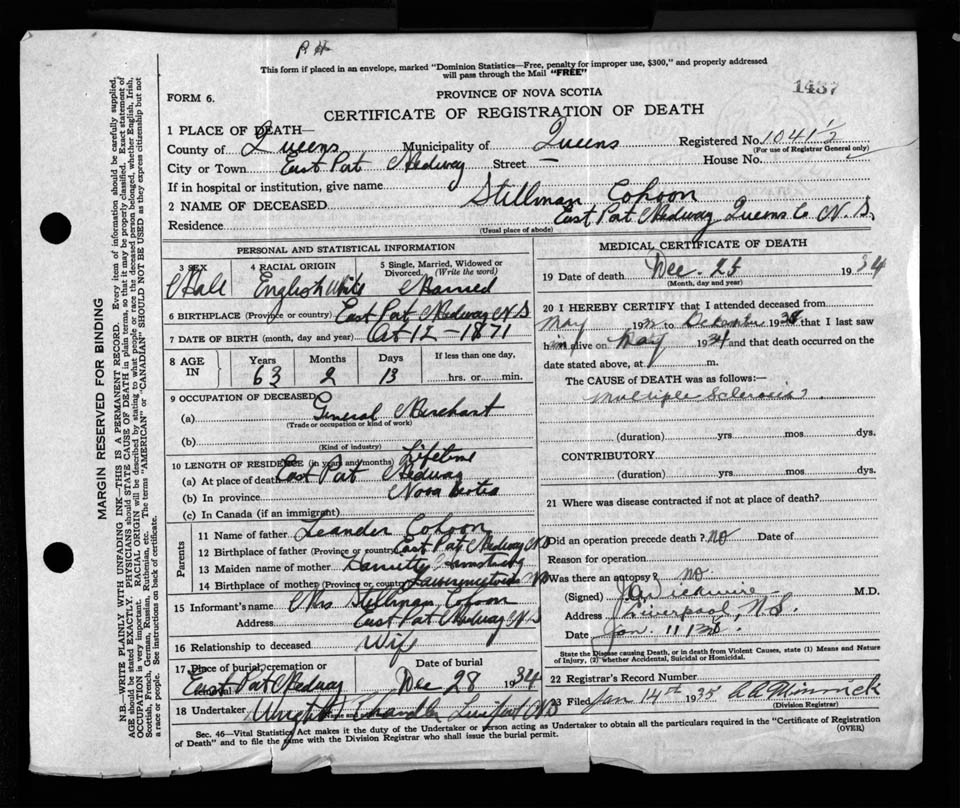 P H
This form if placed in an envelope, marked "Dominion Statistics—Free, penalty for improper use, $300," and properly addressed
will pass through the Mail "FREE"
1437
FORM 6.
PROVINCE OF NOVA SCOTIA
CERTIFICATE OF REGISTRATION OF DEATH
1 PLACE OF DEATH—
County of Queens Municipality of Queens Registered No. 1041½
(For use of Registrar General only)
City or Town East Port Medway Street — House No.
If in hospital or institution, give name
2 NAME OF DECEASED Stillman Cohoon
Residence East Port Medway Queens Co. N. S.
(Usual place of abode)
PERSONAL AND STATISTICAL INFORMATION
3 SEX Male
4 RACIAL ORIGIN English White
5 Single, Married, Widowed or Divorced. (Write the word) Married
6 BIRTHPLACE (Province or country) East Port Medway N S
7 DATE OF BIRTH (month, day and year) Oct 12 - 1871
8 AGE IN Years 63 Months 2 Days 13 If less than one day, hrs. or min.
9 OCCUPATION OF DECEASED
(a) General Merchant
(Trade or occupation or kind of work)
(b)
(Kind of industry)
10 LENGTH OF RESIDENCE (in years and months) Lifetime
(a) At place of death East Port Medway
(b) In province Nova Scotia
(c) In Canada (if an immigrant)
Parents
11 Name of father Leander Cohoon
12 Birthplace of father (Province or country) East Port Medway N S
13 Maiden name of mother
14 Birthplace of mother (Province or country)
15 Informant's name Mrs Stillman Cohoon
Address East Port Medway N S
16 Relationship to deceased Wife
17 Place of burial, cremation or East Port Medway
Date of burial Dec 28 1934
18 Undertaker Wright Chandler N S
MEDICAL CERTIFICATE OF DEATH
19 Date of death Dec. 25 1934
(Month, day and year)
20 I HEREBY CERTIFY that I attended deceased from
May 19 to December 19 that I last saw
him alive on May 1934 and that death occurred on the
date stated above, at m.
The CAUSE OF DEATH was as follows:—
Multiple Sclerosis.
(duration) yrs mos dys.
CONTRIBUTORY
(duration) yrs. mos. dys.
21 Where was disease contracted if not at place of death?
Did an operation precede death? No Date of
Reason for operation
Was there an autopsy? no.
(Signed) M.D.
Address Liverpool, N.S.
Date Jan. 11
State the Disease causing Death, or in death from Violent Causes, state (1) Means and Nature
of Injury, (2) whether Accidental, Suicidal or Homicidal.
22 Registrar's Record Number
23 Filed Jan 14th 1935
(Division Registrar)
Sec. 46—Vital Statistics Act makes it the duty of the Undertaker or person acting as Undertaker to obtain all the particulars required in the "Certificate of Registration
of Death" and to file the same with the Division Registrar who shall issue the burial permit.
(OVER)
MARGIN RESERVED FOR BINDING
N.B.—WRITE PLAINLY WITH UNFADING INK—THIS IS A PERMANENT RECORD. Every item of information should be carefully supplied.
AGE should be stated EXACTLY. PHYSICIANS should STATE CAUSE OF DEATH in plain terms, so that it may be properly classified. Exact statement of
OCCUPATION is very important. RACIAL ORIGIN will be described by stating to what people or race the deceased person belonged, whether English, Irish,
Scottish, French, German, Russian, Ruthenian, etc. The terms "AMERICAN" or "CANADIAN" SHOULD NOT BE USED as they express citizenship but not
a race or people. See instructions on back of certificate.